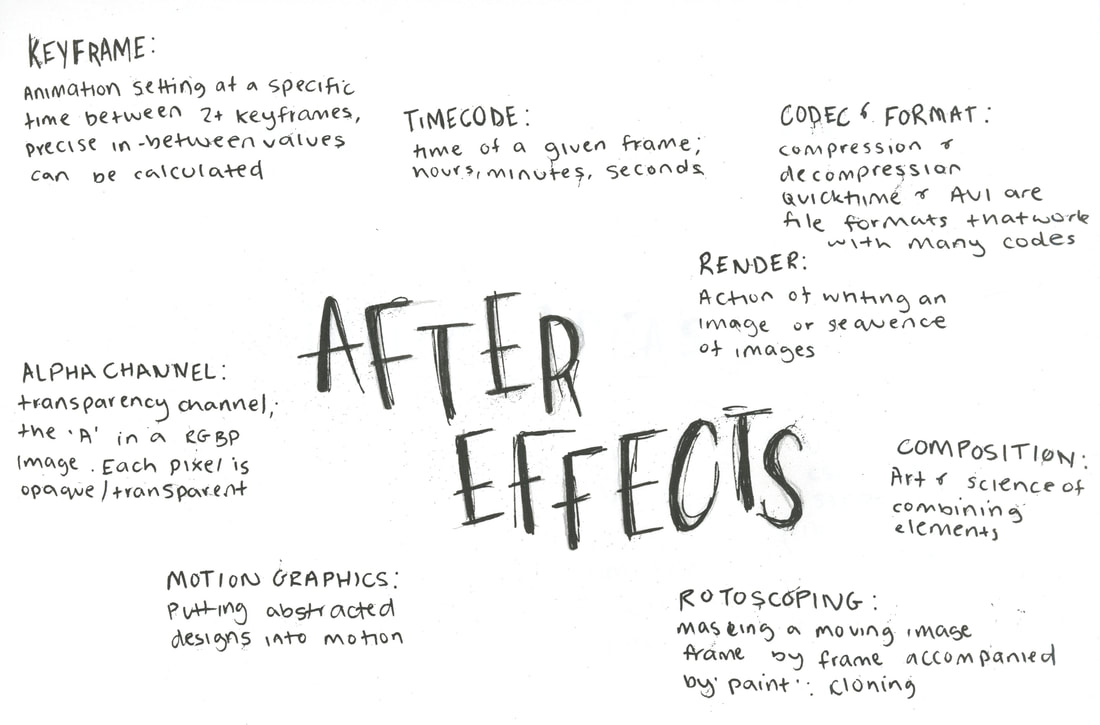 KEYFRAME:
Animation setting at a specific
time between 2+ keyframes,
precise in-between values
can be calculated
TIMECODE:
time of a given frame;
hours, minutes, seconds
CODEC & FORMAT:
compression &
decompression
Quicktime & AVI are
file formats that work
with many codes
RENDER:
Action of writing an
image or sequence
of images
AFTER
EFFECTS
ALPHA CHANNEL:
transparency channel,
the 'A' in a RGBP
Image. Each pixel is
opaque/transparent
COMPOSITION:
Art & science of
combining
elements
MOTION GRAPHICS:
Putting abstracted
designs into motion
ROTOSCOPING:
masking a moving image
frame by frame accompanied
by paint : cloning